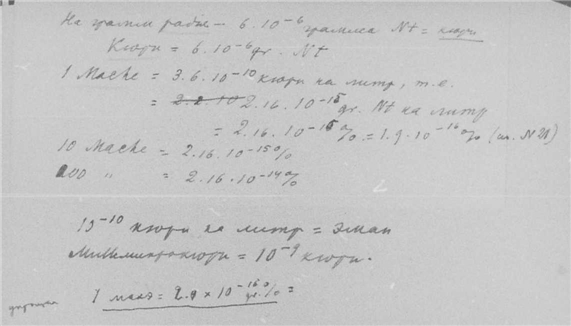 На грамм радия — 6.10⁻⁶ грамма Nt = кюри
Кюри = 6.10⁻⁶ gr. Nt
1 Махе = 3.6.10⁻¹⁰ кюри на литр, т.е.
= 2.16.10⁻¹⁵ gr. Nt на литр
= 2.16.10⁻¹⁶ % = 1.9.10⁻¹⁶ % (см. N 21)
10 Махе = 2.16.10⁻¹⁵ %
100 " = 2.16.10⁻¹⁴ %
10⁻¹⁰ кюри на литр = эман
Миллимикрокюри = 10⁻⁹ кюри.
1 махэ = 2.9 × 10⁻¹⁶ gr. % =